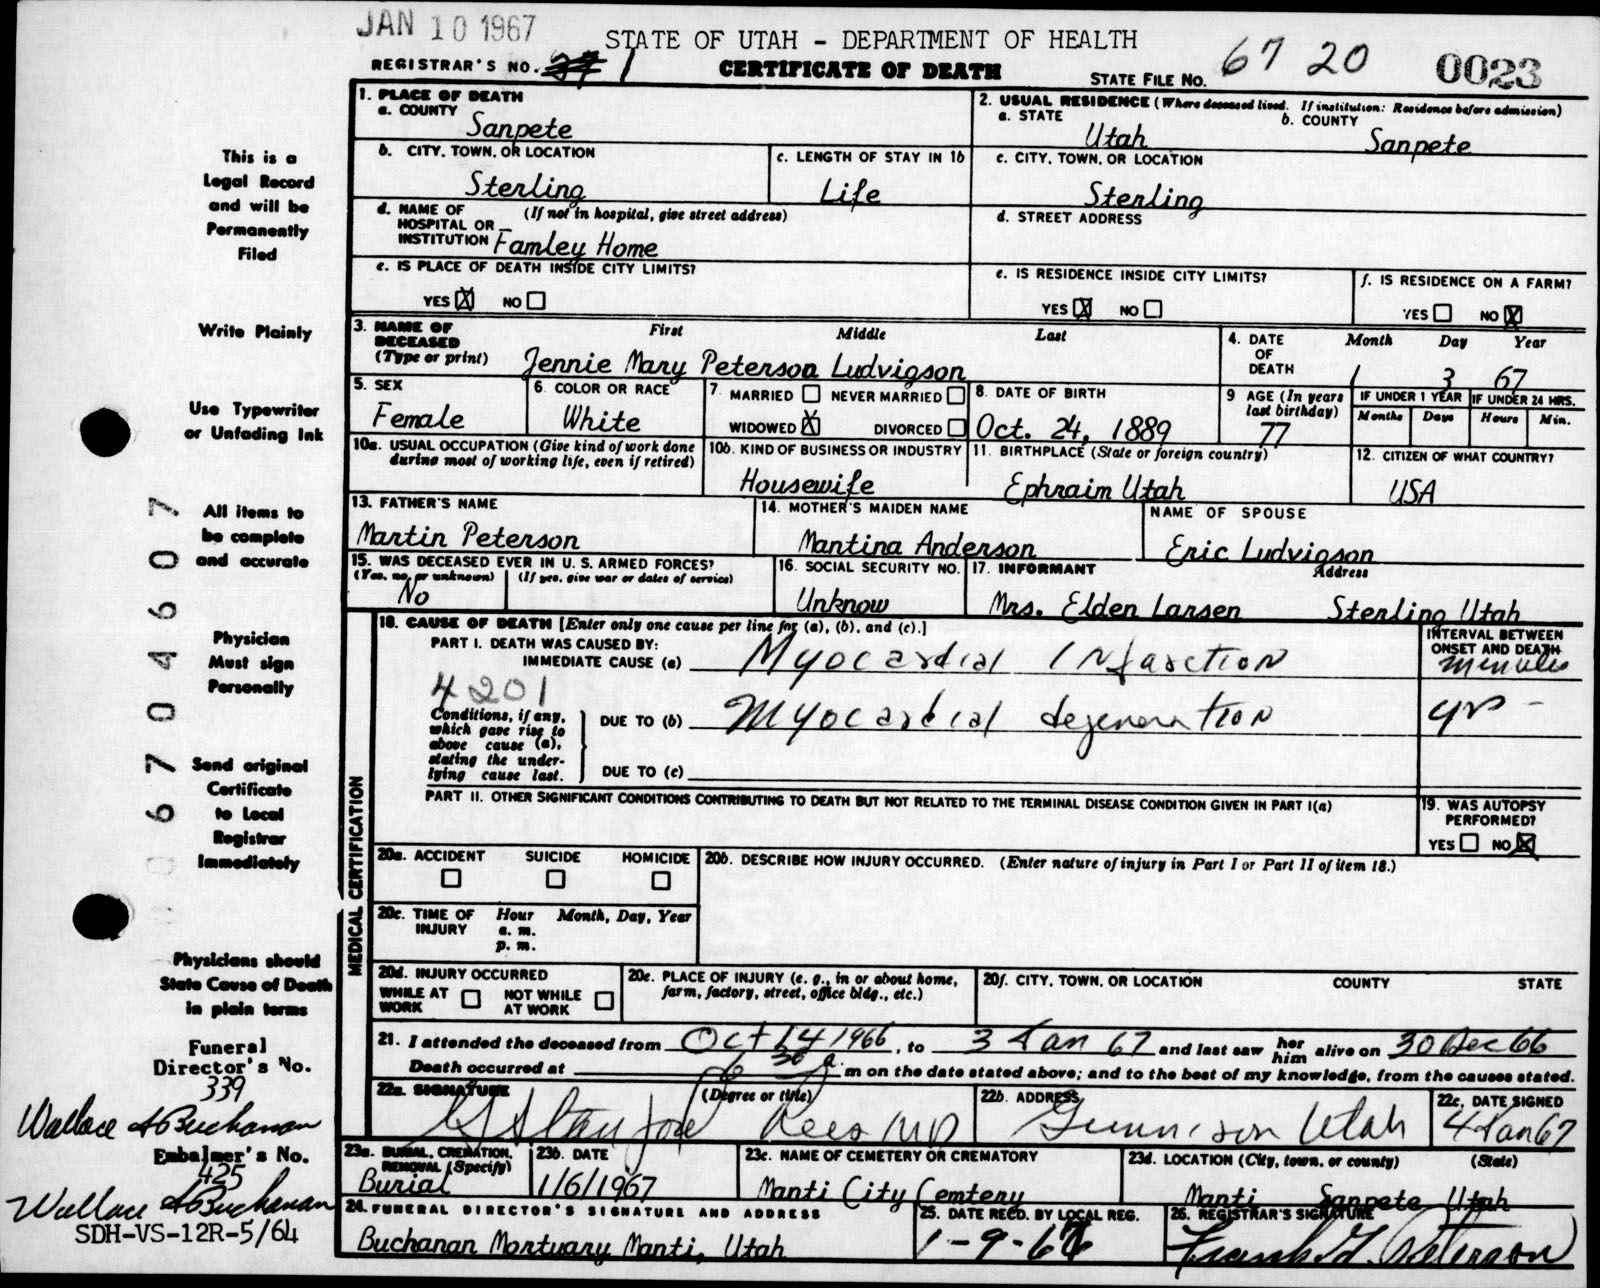 JAN 10 1967
STATE OF UTAH - DEPARTMENT OF HEALTH
REGISTRAR'S NO. 1
CERTIFICATE OF DEATH
STATE FILE NO. 67 20 0023
1. PLACE OF DEATH
a. COUNTY
Sanpete
2. USUAL RESIDENCE (Where deceased lived. If institution: Residence before admission)
a. STATE b. COUNTY
Utah Sanpete
b. CITY, TOWN, OR LOCATION
Sterling
c. LENGTH OF STAY IN 1b
Life
c. CITY, TOWN, OR LOCATION
Sterling
d. NAME OF HOSPITAL OR INSTITUTION (If not in hospital, give street address)
Famley Home
d. STREET ADDRESS
e. IS PLACE OF DEATH INSIDE CITY LIMITS?
YES X NO
e. IS RESIDENCE INSIDE CITY LIMITS?
YES X NO
f. IS RESIDENCE ON A FARM?
YES NO X
3. NAME OF DECEASED (Type or print)
First Middle Last
Jennie Mary Peterson Ludvigson
4. DATE OF DEATH
Month Day Year
1 3 67
5. SEX
Female
6. COLOR OR RACE
White
7. MARRIED NEVER MARRIED
WIDOWED X DIVORCED
8. DATE OF BIRTH
Oct. 24, 1889
9 AGE (In years last birthday)
77
IF UNDER 1 YEAR
Months Days
IF UNDER 24 HRS.
Hours Min.
10a. USUAL OCCUPATION (Give kind of work done during most of working life, even if retired)
10b. KIND OF BUSINESS OR INDUSTRY
Housewife
11. BIRTHPLACE (State or foreign country)
Ephraim Utah
12. CITIZEN OF WHAT COUNTRY?
USA
13. FATHER'S NAME
Martin Peterson
14. MOTHER'S MAIDEN NAME
Mantina Anderson
NAME OF SPOUSE
Eric Ludvigson
15. WAS DECEASED EVER IN U. S. ARMED FORCES?
(Yes, no, or unknown) (If yes, give war or dates of service)
No
16. SOCIAL SECURITY NO.
Unknow
17. INFORMANT Address
Mrs. Elden Larsen Sterling Utah
MEDICAL CERTIFICATION
18. CAUSE OF DEATH [Enter only one cause per line for (a), (b), and (c).]
INTERVAL BETWEEN ONSET AND DEATH
PART I. DEATH WAS CAUSED BY:
IMMEDIATE CAUSE (a) Myocardial Infarction minutes
4201
Conditions, if any, which gave rise to above cause (a), stating the underlying cause last.
DUE TO (b) Myocardial degeneration yrs -
DUE TO (c)
PART II. OTHER SIGNIFICANT CONDITIONS CONTRIBUTING TO DEATH BUT NOT RELATED TO THE TERMINAL DISEASE CONDITION GIVEN IN PART I(a)
19. WAS AUTOPSY PERFORMED?
YES NO X
20a. ACCIDENT SUICIDE HOMICIDE
20b. DESCRIBE HOW INJURY OCCURRED. (Enter nature of injury in Part I or Part II of item 18.)
20c. TIME OF INJURY Hour Month, Day, Year
a. m.
p. m.
20d. INJURY OCCURRED
WHILE AT WORK NOT WHILE AT WORK
20e. PLACE OF INJURY (e. g., in or about home, farm, factory, street, office bldg., etc.)
20f. CITY, TOWN, OR LOCATION COUNTY STATE
21. I attended the deceased from Oct 14 1966, to 3 Jan 67 and last saw her him alive on 30 Dec 66
Death occurred at 6 30 a. m on the date stated above; and to the best of my knowledge, from the causes stated.
22a. SIGNATURE (Degree or title)
G Stanford Rees MD
22b. ADDRESS
Gunnison Utah
22c. DATE SIGNED
4 Jan 67
23a. BURIAL, CREMATION, REMOVAL (Specify)
Burial
23b. DATE
1/6/1967
23c. NAME OF CEMETERY OR CREMATORY
Manti City Cemtery
23d. LOCATION (City, town, or county) (State)
Manti Sanpete Utah
24. FUNERAL DIRECTOR'S SIGNATURE AND ADDRESS
Buchanan Mortuary Manti, Utah
25. DATE RECD. BY LOCAL REG.
1-9-67
26. REGISTRAR'S SIGNATURE
Frank H. Peterson
This is a
Legal Record
and will be
Permanently
Filed
Write Plainly
Use Typewriter
or Unfading Ink
All items to
be complete
and accurate
Physician
Must sign
Personally
Send original
Certificate
to Local
Registrar
Immediately
Physicians should
State Cause of Death
in plain terms
6704607
Funeral
Director's No.
339
Wallace A Buchanan
Embalmer's No.
425
Wallace A Buchanan
SDH-VS-12R-5/64